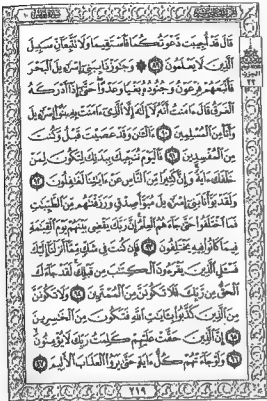 قَالَ قَدْ أُجِيبَت دَّعْوَتُكُمَا فَٱسْتَقِيمَا وَلَا تَتَّبِعَآنِّ سَبِيلَ
ٱلَّذِينَ لَا يَعْلَمُونَ ٨٩ ۞ وَجَٰوَزْنَا بِبَنِىٓ إِسْرَٰٓءِيلَ ٱلْبَحْرَ
فَأَتْبَعَهُمْ فِرْعَوْنُ وَجُنُودُهُۥ بَغْيًا وَعَدْوًا حَتَّىٰٓ إِذَآ أَدْرَكَهُ
ٱلْغَرَقُ قَالَ ءَامَنتُ أَنَّهُۥ لَآ إِلَٰهَ إِلَّا ٱلَّذِىٓ ءَامَنَتْ بِهِۦ بَنُوٓا۟ إِسْرَٰٓءِيلَ
وَأَنَا۠ مِنَ ٱلْمُسْلِمِينَ ٩٠ ءَآلْـَٰٔنَ وَقَدْ عَصَيْتَ قَبْلُ وَكُنتَ
مِنَ ٱلْمُفْسِدِينَ ٩١ فَٱلْيَوْمَ نُنَجِّيكَ بِبَدَنِكَ لِتَكُونَ لِمَنْ
خَلْفَكَ ءَايَةً وَإِنَّ كَثِيرًا مِّنَ ٱلنَّاسِ عَنْ ءَايَٰتِنَا لَغَٰفِلُونَ ٩٢
وَلَقَدْ بَوَّأْنَا بَنِىٓ إِسْرَٰٓءِيلَ مُبَوَّأَ صِدْقٍ وَرَزَقْنَٰهُم مِّنَ ٱلطَّيِّبَٰتِ
فَمَا ٱخْتَلَفُوا۟ حَتَّىٰ جَآءَهُمُ ٱلْعِلْمُ إِنَّ رَبَّكَ يَقْضِى بَيْنَهُمْ يَوْمَ ٱلْقِيَٰمَةِ
فِيمَا كَانُوا۟ فِيهِ يَخْتَلِفُونَ ٩٣ فَإِن كُنتَ فِى شَكٍّ مِّمَّآ أَنزَلْنَآ إِلَيْكَ
فَسْـَٔلِ ٱلَّذِينَ يَقْرَءُونَ ٱلْكِتَٰبَ مِن قَبْلِكَ لَقَدْ جَآءَكَ
ٱلْحَقُّ مِن رَّبِّكَ فَلَا تَكُونَنَّ مِنَ ٱلْمُمْتَرِينَ ٩٤ وَلَا تَكُونَنَّ
مِنَ ٱلَّذِينَ كَذَّبُوا۟ بِـَٔايَٰتِ ٱللَّهِ فَتَكُونَ مِنَ ٱلْخَٰسِرِينَ
٩٥ إِنَّ ٱلَّذِينَ حَقَّتْ عَلَيْهِمْ كَلِمَتُ رَبِّكَ لَا يُؤْمِنُونَ
٩٦ وَلَوْ جَآءَتْهُمْ كُلُّ ءَايَةٍ حَتَّىٰ يَرَوُا۟ ٱلْعَذَابَ ٱلْأَلِيمَ ٩٧
٢١٩